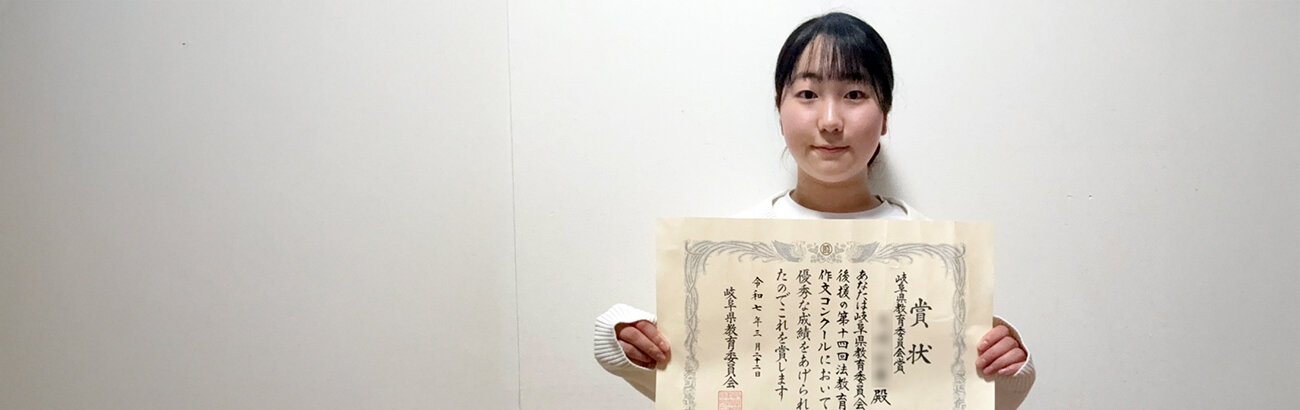 賞状
岐阜県教育委員会賞
殿
あなたは岐阜県教育委員会
後援の第十四回法教育
作文コンクールにおいて
優秀な成績をあげられ
たのでこれを賞します
令和七年三月二十三日
岐阜県教育委員会